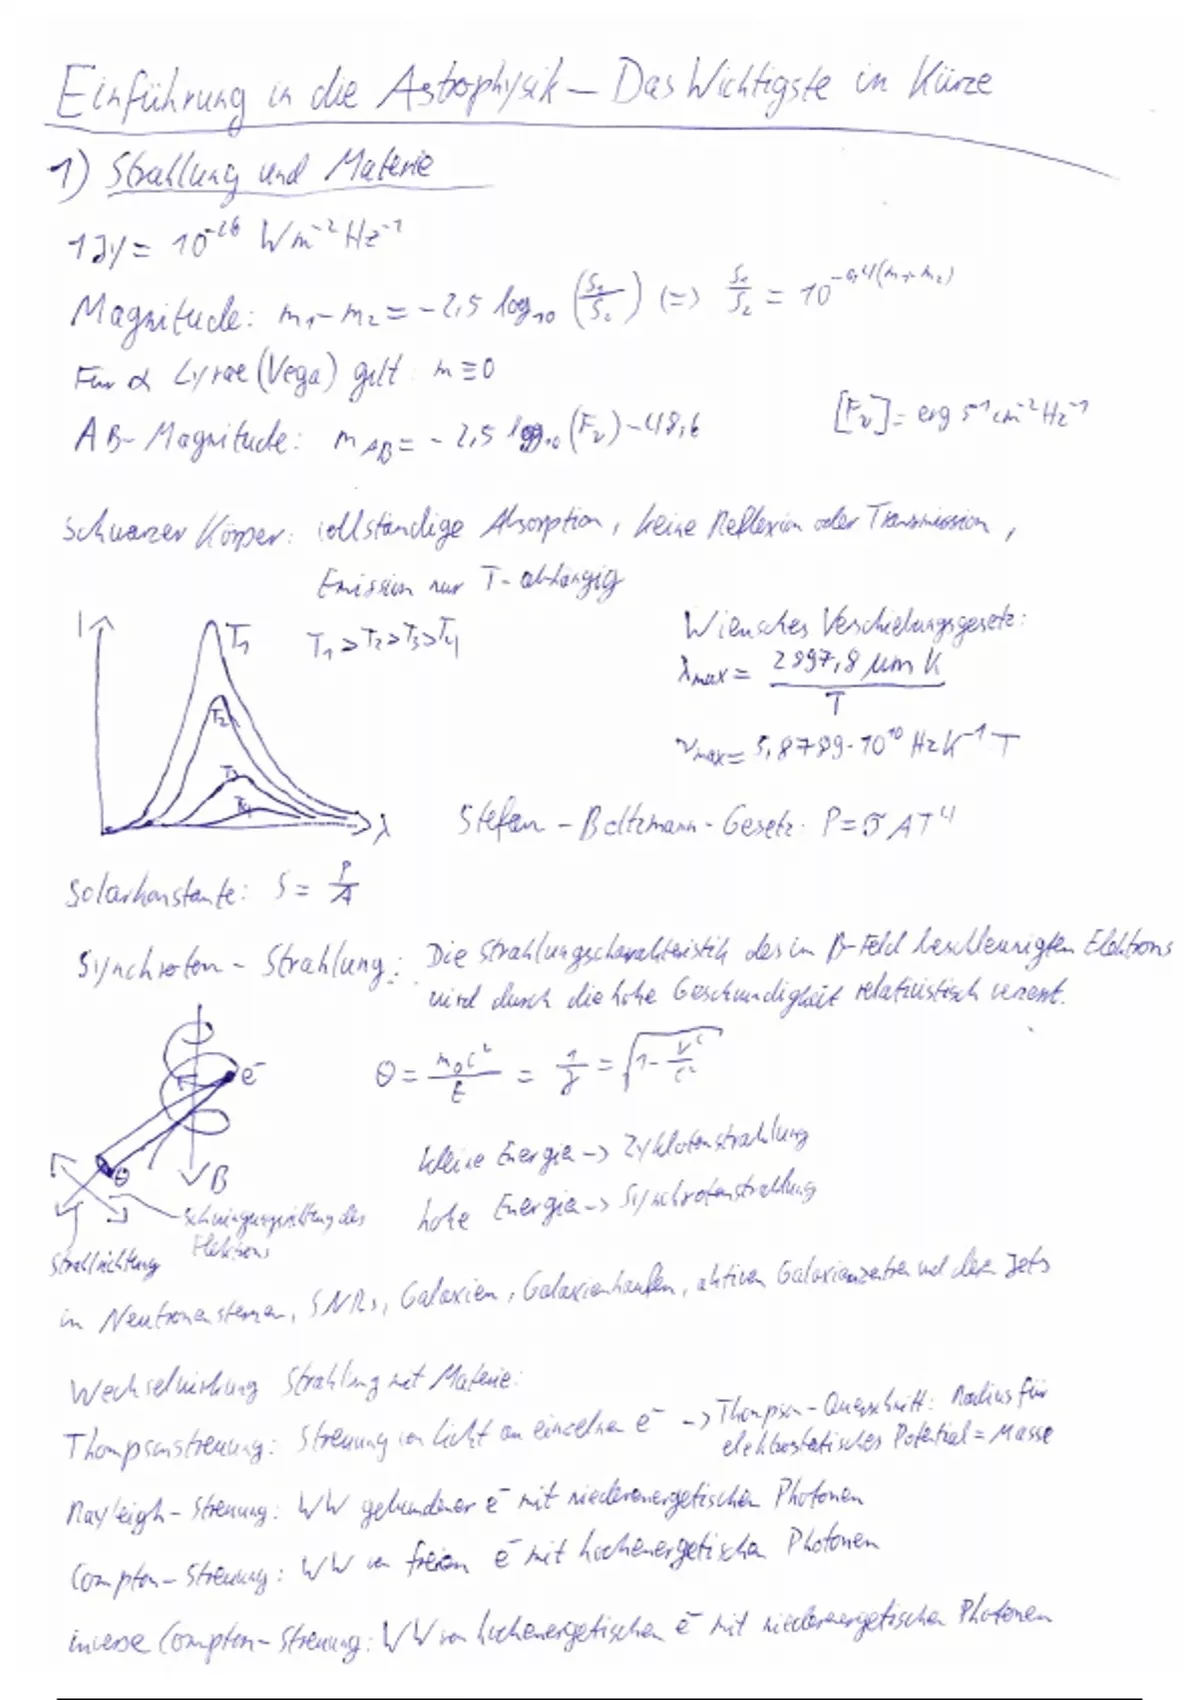 Einführung in die Astrophysik – Das Wichtigste in Kürze
1) Strahlung und Materie
1 Jy = 10⁻²⁶ W m⁻² Hz⁻¹
Magnitude: m₁ - m₂ = -2,5 log₁₀ (S₁/S₂) <=> S₁/S₂ = 10^(-0,4(m₁-m₂))
Für α Lyrae (Vega) gilt: m ≡ 0
AB-Magnitude: m_AB = -2,5 log₁₀(F_ν) - 48,6 [F_ν] = erg s⁻¹ cm⁻² Hz⁻¹
Schwarzer Körper: vollständige Absorption, keine Reflexion oder Transmission,
Emission nur T-abhängig
I T₁ T₂ T₃ T₄ λ
T₁ > T₂ > T₃ > T₄
Wiensches Verschiebungsgesetz:
λ_max = 2897,8 μm K / T
ν_max = 5,8789·10¹⁰ Hz K⁻¹ T
Stefan-Boltzmann-Gesetz: P = σ A T⁴
Solarkonstante: S = P/A
Synchroton-Strahlung: Die Strahlungscharakteristik des im B-Feld beschleunigten Elektrons
wird durch die hohe Geschwindigkeit relativistisch verzerrt.
e⁻ Θ B
Θ = m₀c²/E = 1/γ = √(1 - v²/c²)
kleine Energie -> Zyklotonstrahlung
hohe Energie -> Synchrotonstrahlung
Schwingungsrichtung des
Elektrons
Strahlrichtung
in Neutronensternen, SNRs, Galaxien, Galaxienhaufen, aktiven Galaxienzentren und deren Jets
Wechselwirkung Strahlung mit Materie:
Thompsonstreuung: Streuung von Licht an einzelnen e⁻ -> Thompson-Querschnitt: Radius für
elektrostatisches Potential = Masse
Rayleigh-Streuung: WW gebundener e⁻ mit niederenergetischen Photonen
Compton-Streuung: WW von freien e⁻ mit hochenergetischen Photonen
inverse Compton-Streuung: WW von hochenergetischen e⁻ mit niederenergetischen Photonen